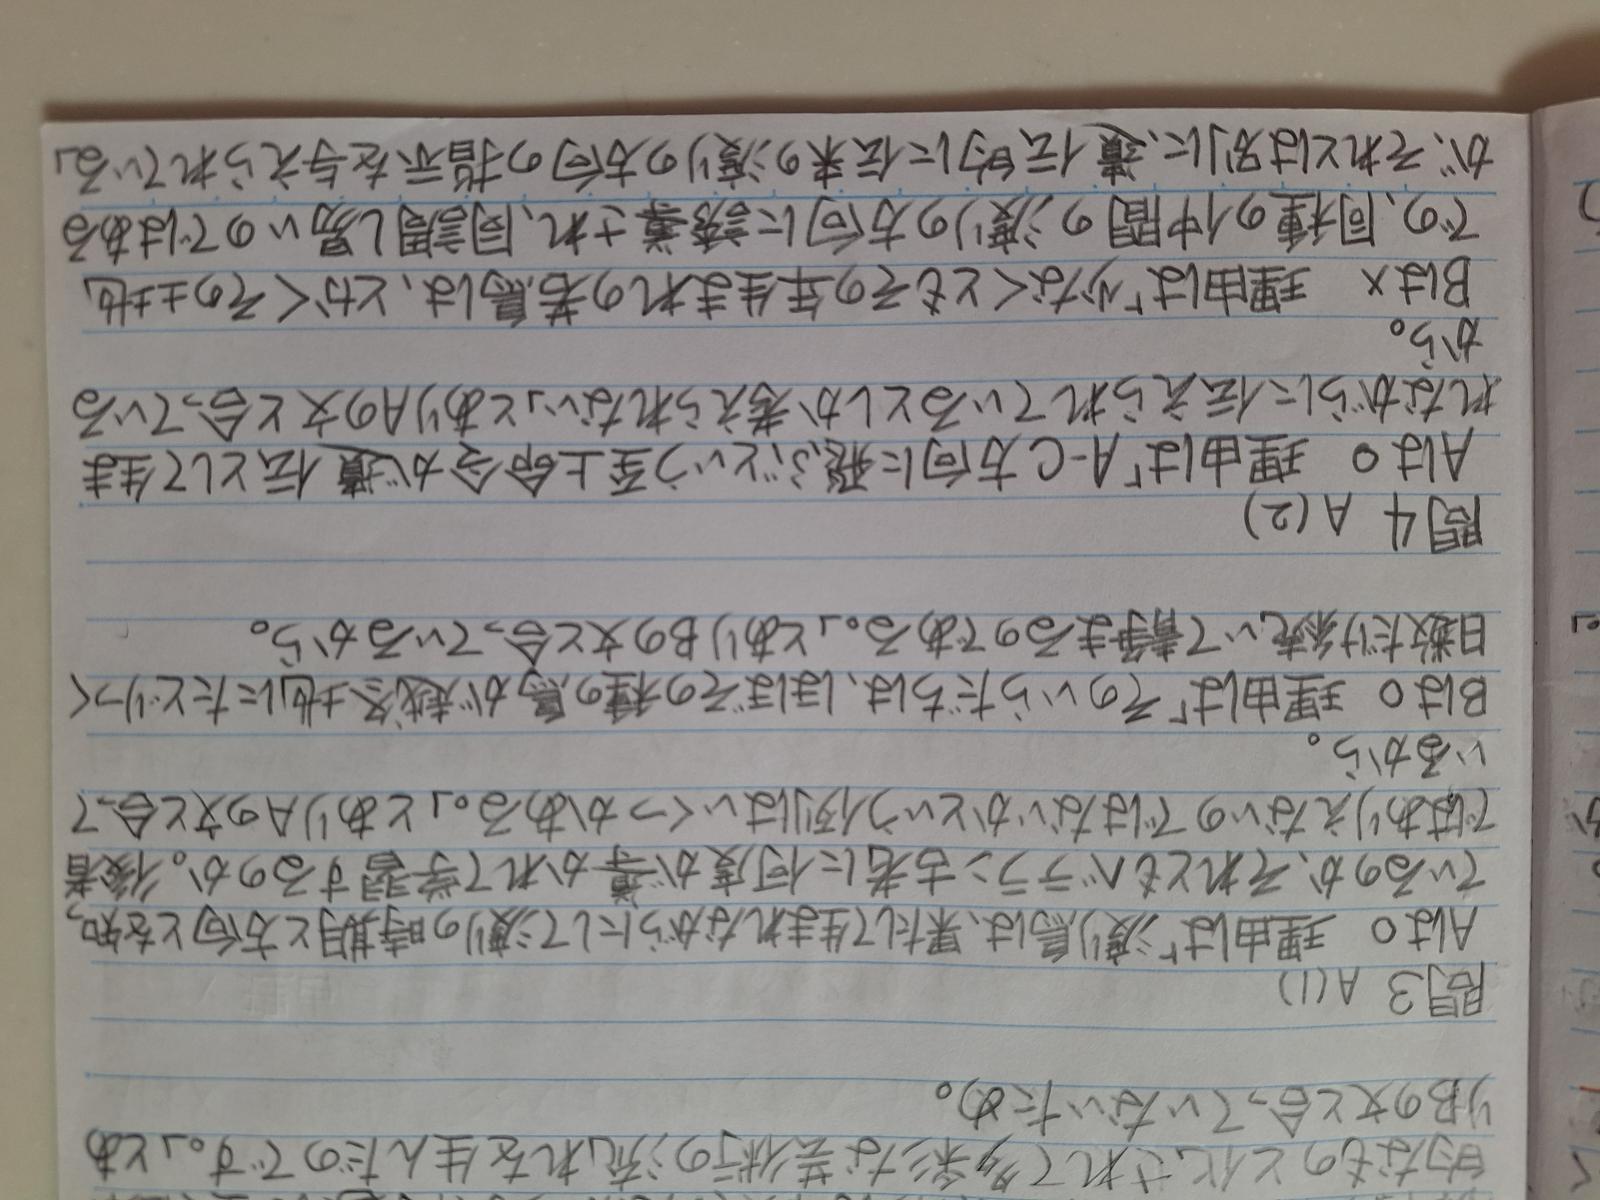 的なものと化されて多彩な芸術の流れを生んだのです。」とあ
りBの文と合っていないため。
問3 A(1)
Aは○ 理由は「渡り鳥は、果たして生まれながらにして渡りの時期と方向とを知っ
ているのか、それともベテラン古老に何度か導かれて学習するのか。後者
ではありえないのではないかという例はいくつかある。」とありAの文と合って
いるから。
Bは○ 理由は「そのいらだちは、ほぼその種の鳥が越冬土地にたどりつく
日数だけ続いて静まるのである。」とありBの文と合っているから。
問4 A(2)
Aは○ 理由は「A-C方向に飛ぶ"という至上命令が遺伝として生ま
れながらに伝えられているとしか考えられない」とありAの文と合っている
から。
Bは× 理由は「少なくともその年生まれの若鳥は、とかくその土地
での、同種の仲間の渡りの方向に誘導され、同調し易いのではある
が、それとは別に、遺伝的に伝来の渡りの方向の指示を与えられている」